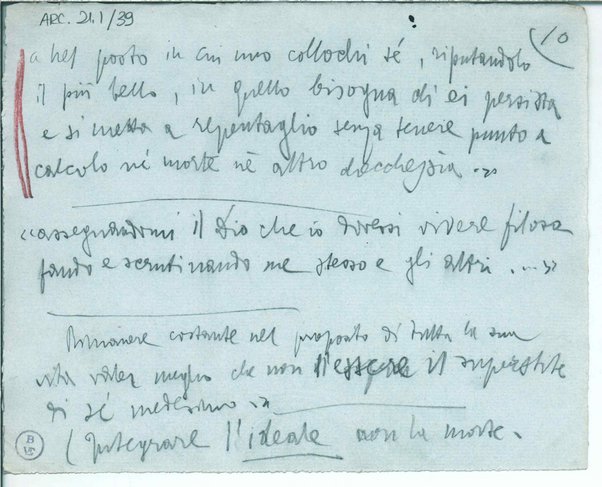 ARC. 21.1/39
10
a nel posto in cui uno collochi sé, riputandolo
il più bello, in quello bisogna di ei persista
e si metta a repentaglio senza tenere punto a
calcolo né morte né altro checchessia..»
«assegnandomi il Dio che io dovessi vivere filoso
fando e scrutinando me stesso e gli altri...»
Rimanere costante nel proposto di tutta la sua
vita valer meglio che non l'essere il superstite
di sé medesimo.»
(Integrare l'ideale con la morte.
B